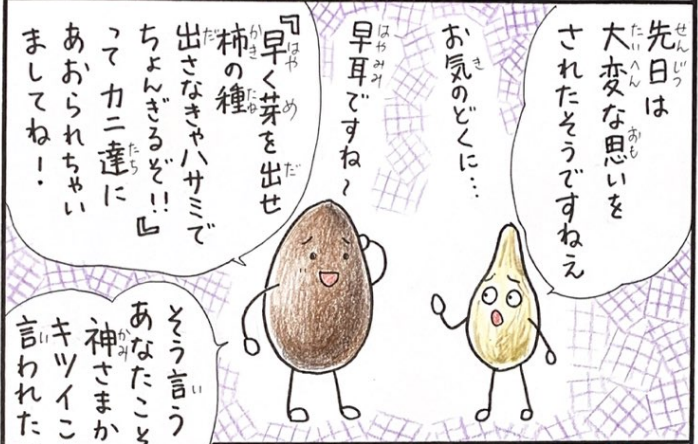 先日は
大変な思いを
されたそうですねえ
お気のどくに…
早耳ですね~
『早く芽を出せ
柿の種
出さなきゃハサミで
ちょんぎるぞ!!』
って カニ達に
あおられちゃい
ましてね!
そう言う
あなたこそ
神さまか
キツイこ
言われた